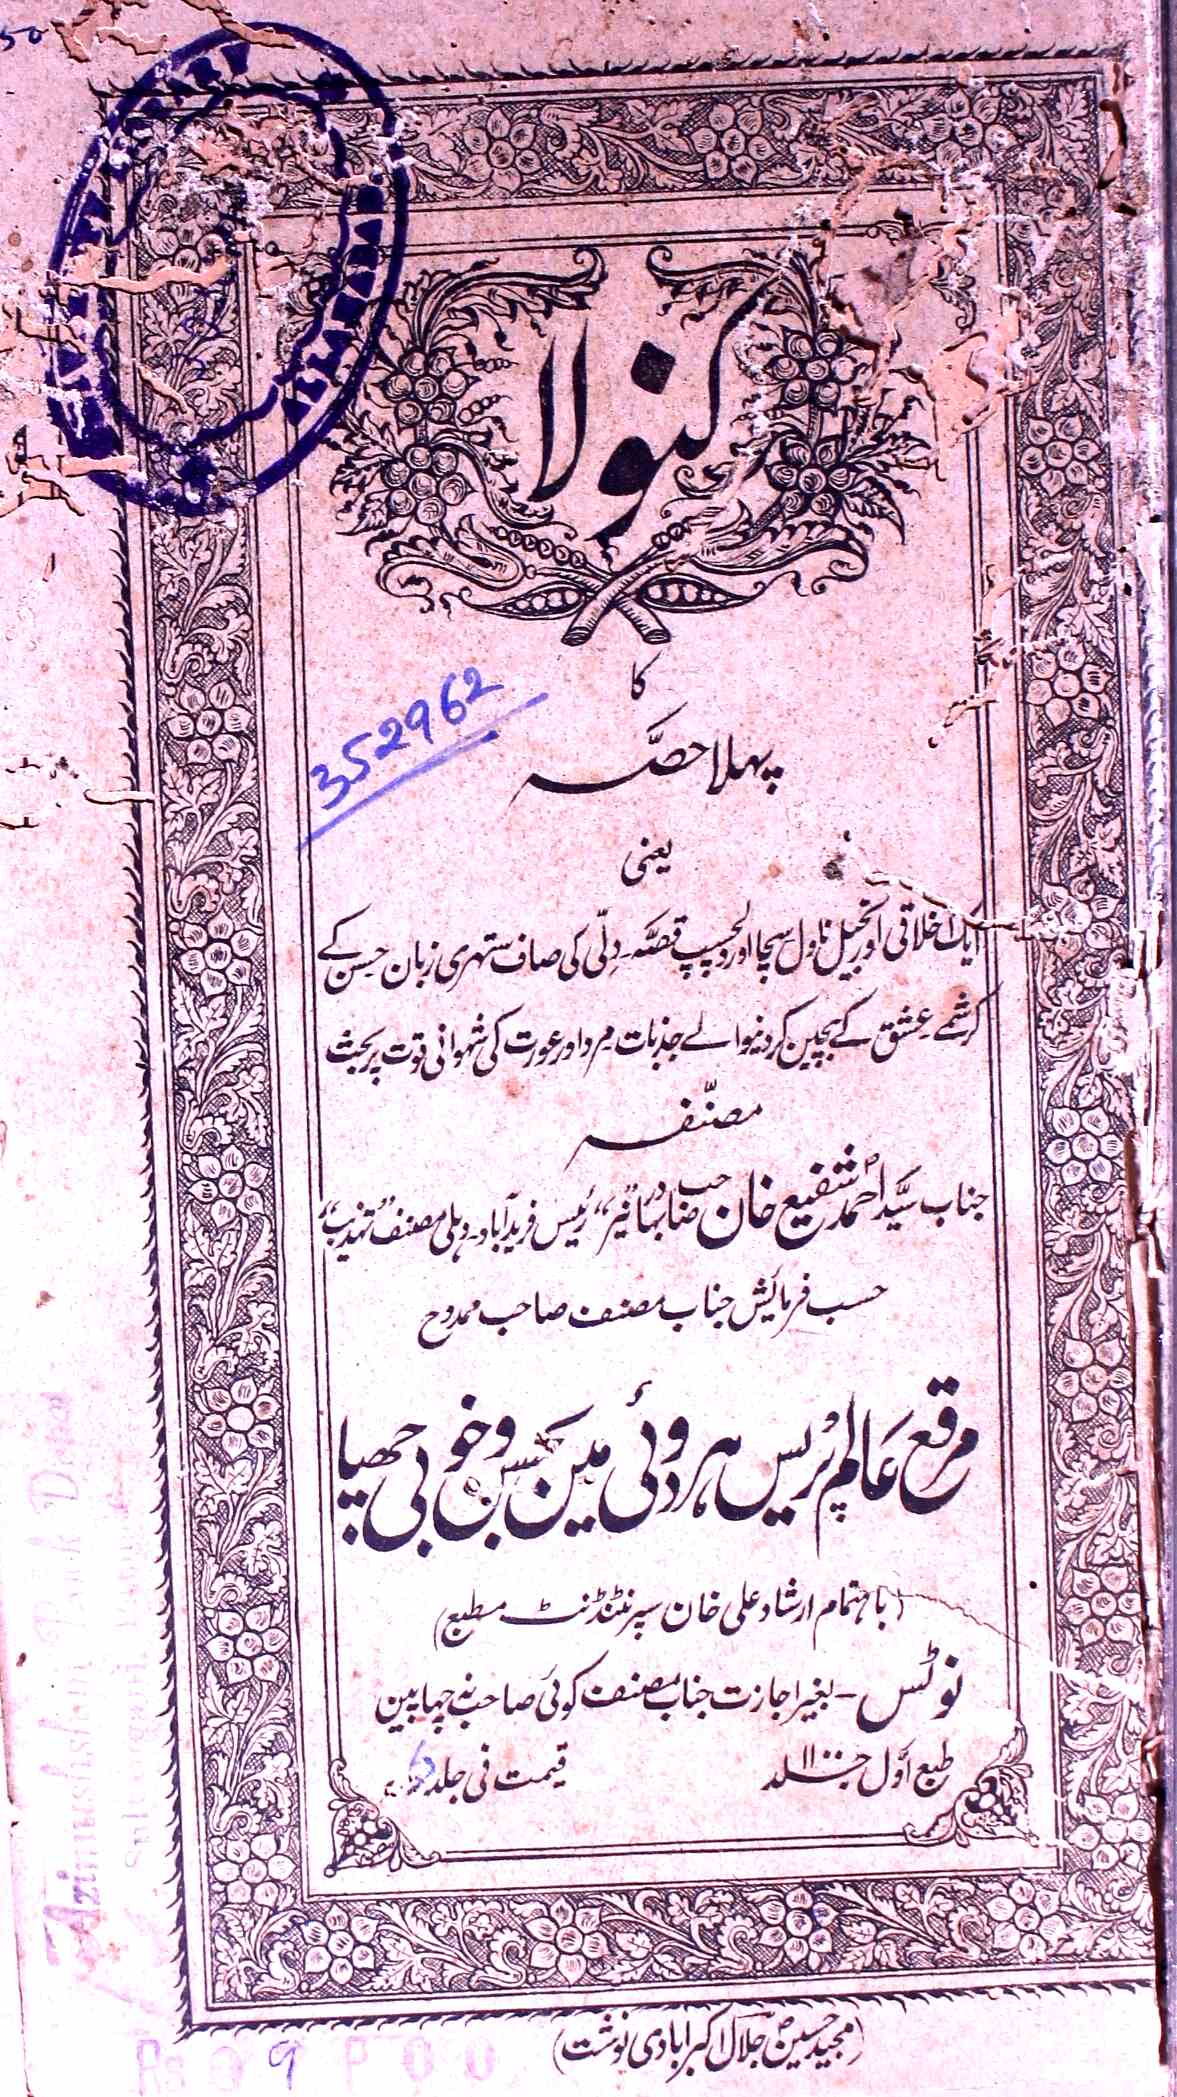 کنولا
کا
پہلا حصّہ
یعنی
ایک اخلاقی اور نیچرل ناول سچا اور دلچسپ قصّہ۔ دلّی کی صاف ستھری زبان حسن کے
کرشمے عشق کے بیچین کردینوالے جذبات مرد اور عورت کی شہوانی قوت پر بحث
مصنّفہ
جناب سیّد احمد شفیع خان صاحب بہادر ”نیّر“ رئیس فریدآباد۔ دہلی مصنف ”تہذیب“
حسب فرمائیش جناب مصنف صاحب ممدوح
مرقع عالم پریس ہردوئی مین بحسن و خوبی چھپا
(باہتمام ارشاد علی خان سپرنٹنڈنٹ مطبع)
نوٹس۔ بغیر اجازت جناب مصنف کوئی صاحب نہ چھاپین
طبع اوّل ۱۱۰۰ جلد
قیمت فی جلد
(مجید حسین جلالؔ اکبرآبادی نوشت)
352962
Azimushshan Book Depot
Sultanganj
Rs 9 P 00